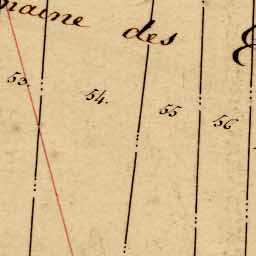 maine des
53.
54.
55
56